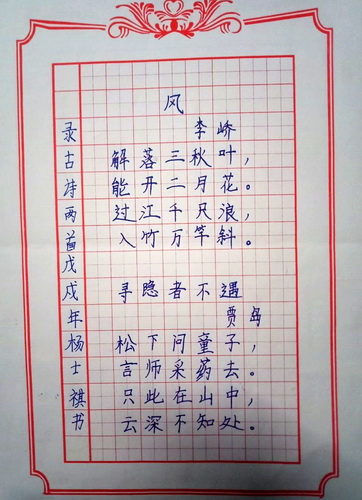 风
李峤
解落三秋叶，
能开二月花。
过江千尺浪，
入竹万竿斜。
寻隐者不遇
贾岛
松下问童子，
言师采药去。
只此在山中，
云深不知处。
录古诗两首戊戌年杨士祺书